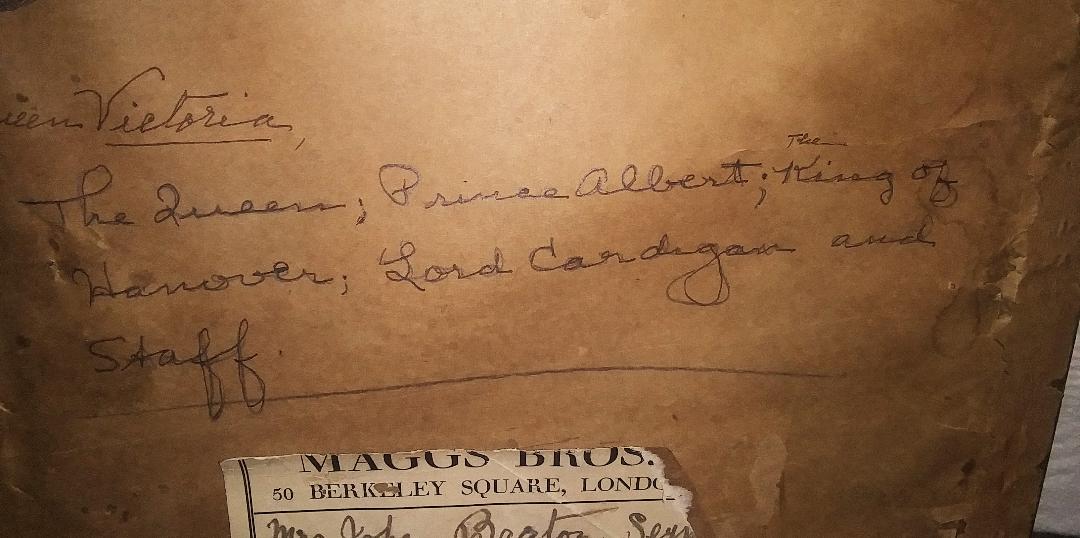 Victoria,
The Queen; Prince Albert; The King of
Hanover; Lord Cardigan and
Staff.
MAGGS BROS.
50 BERKELEY SQUARE, LONDO
Mrs John